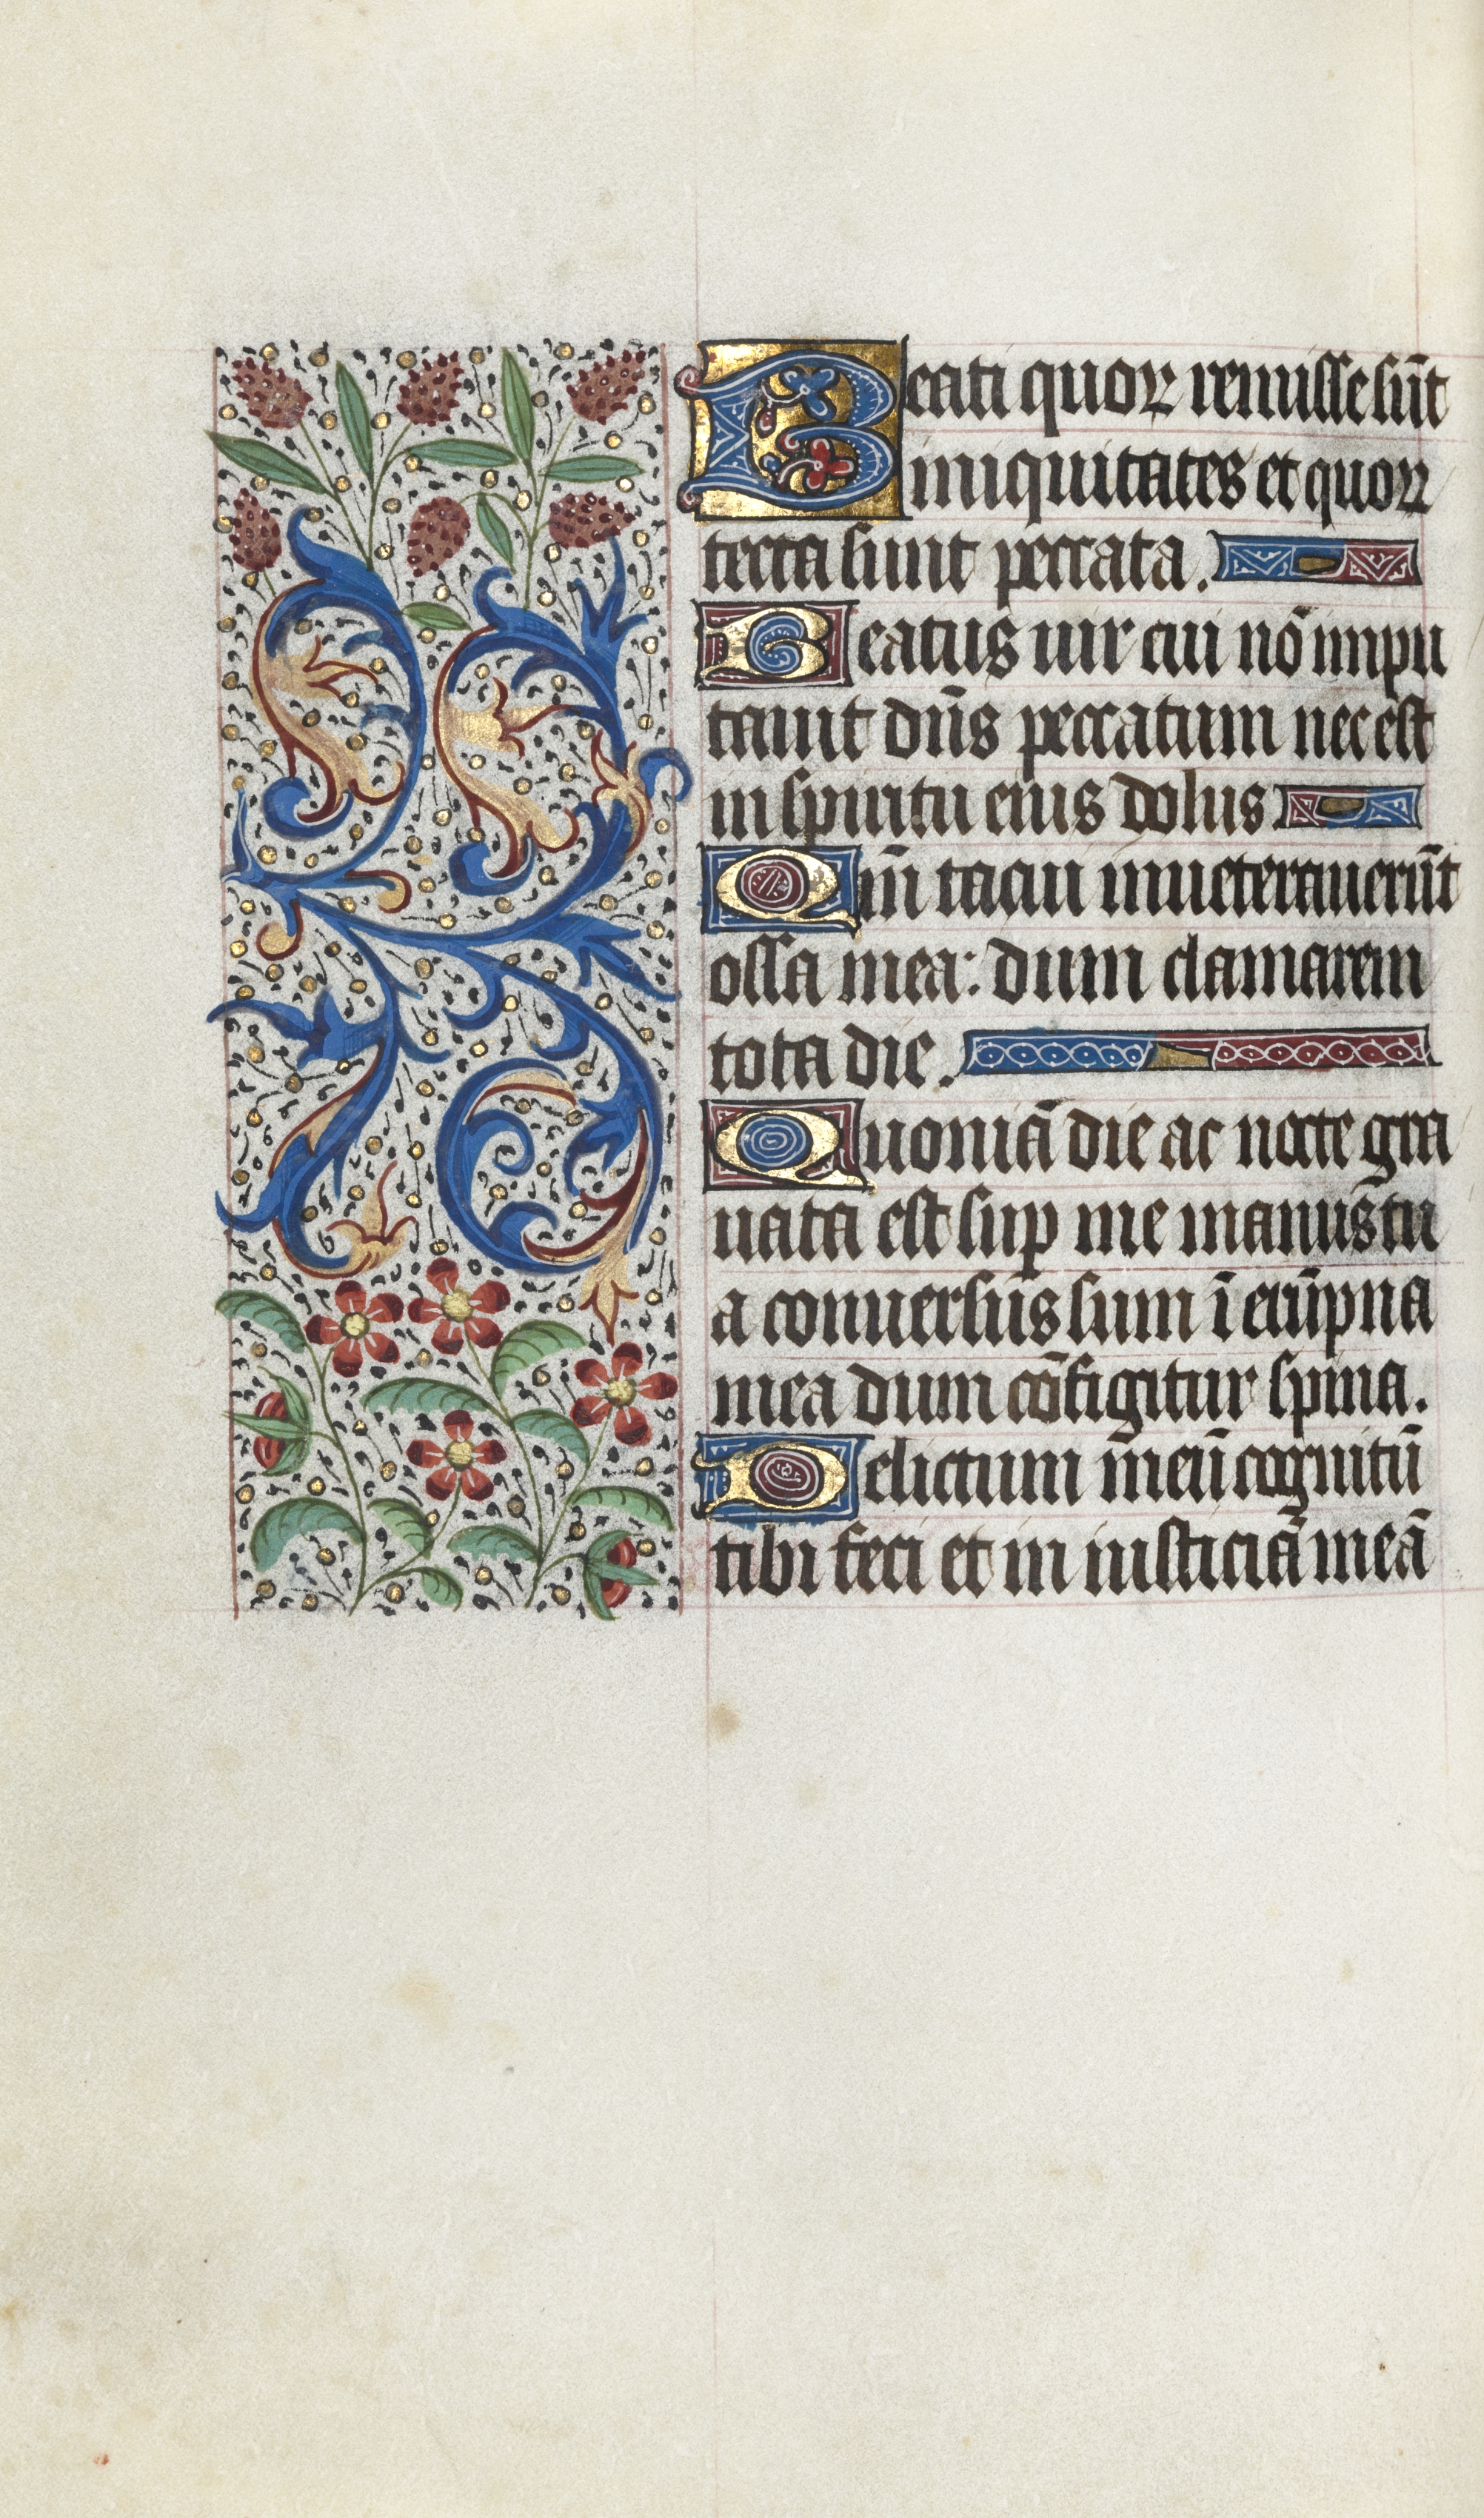 Beati quoꝝ remisse sūt
iniquitates et quoꝝ
tecta sunt peccata.
Beatus uir cui nō impu
tauit dn̄s peccatum nec est
in spiritu eius dolus
Qm̄ tacui inueterauerūt
ossa mea: dum clamarem
tota die.
Quoniā die ac nocte gra
uata est sup me manus tu
a conuersus sum ī erūpna
mea dum cōfigitur spina.
Delictum meū cognitū
tibi feci et in iusticiā meā